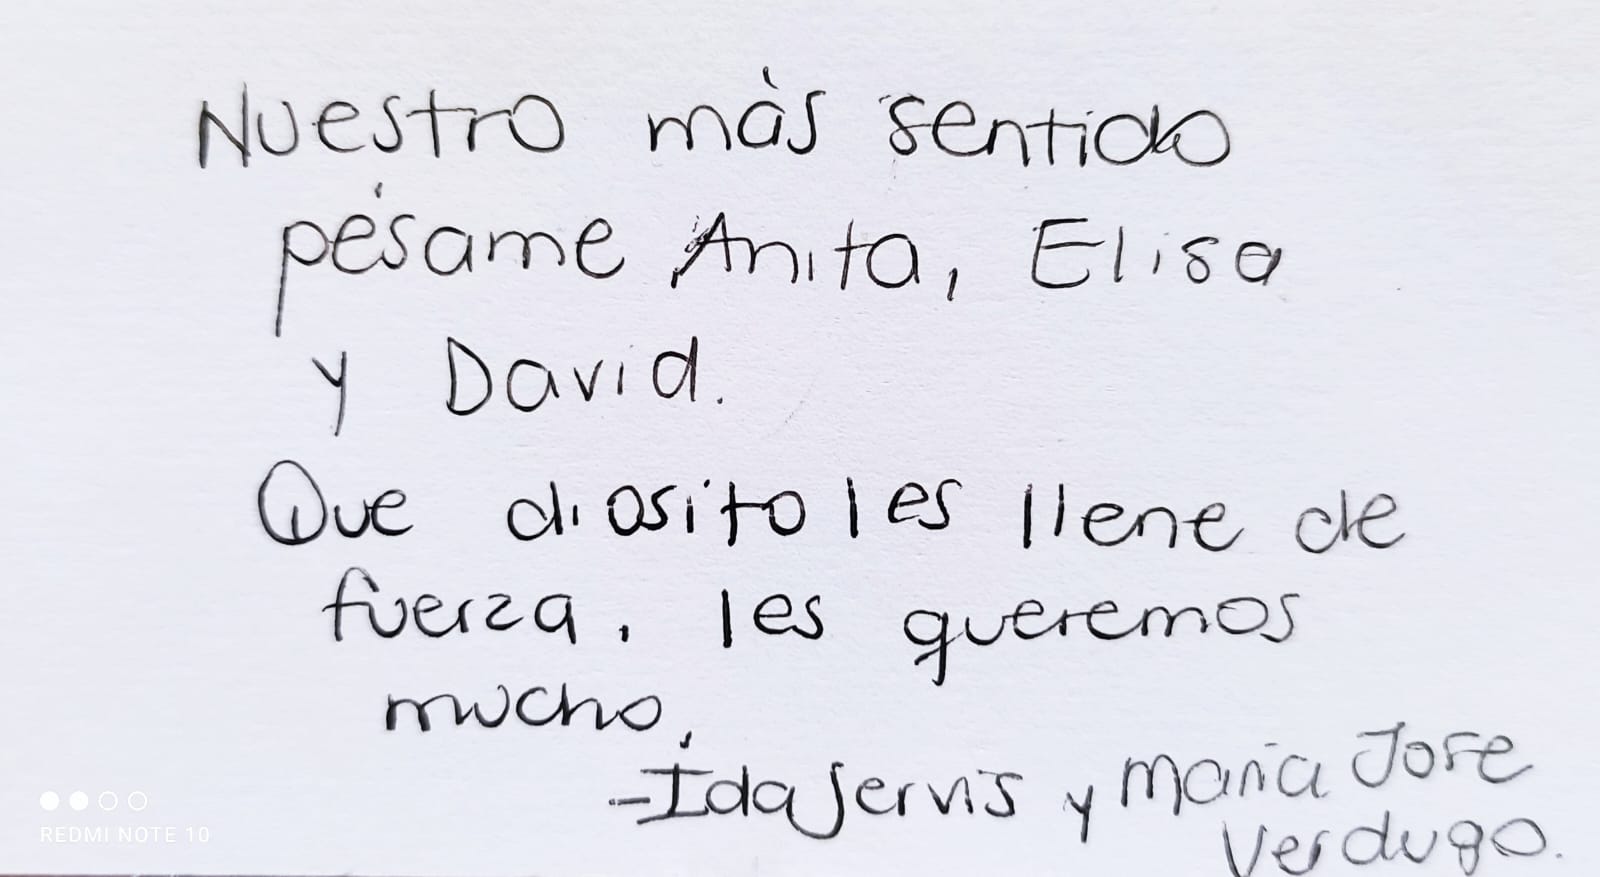 Nuestro más sentido
pésame Anita, Elisa
y David.
Que diosito les llene de
fuerza, les queremos
mucho,
-Ida Jervis y Maria Jose
Verdugo.
REDMI NOTE 10